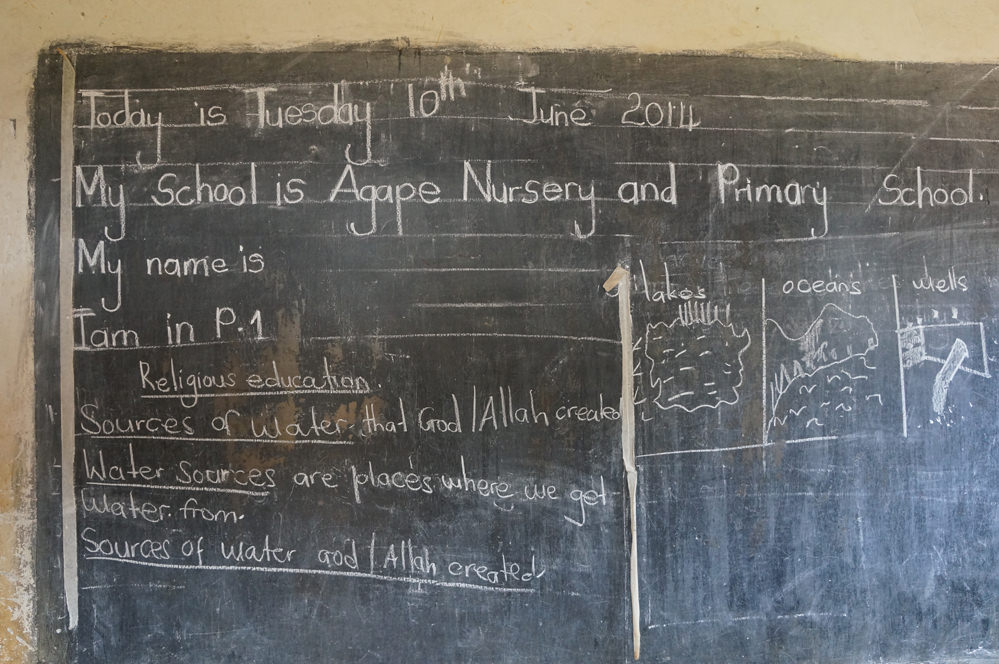 Today is Tuesday 10th June 2014
My School is Agape Nursery and Primary School.
My name is
I am in P.1
Religious education.
Sources of water that God / Allah created
Water Sources are places where we get
Water from.
Sources of water God / Allah created
lakes
oceans
wells